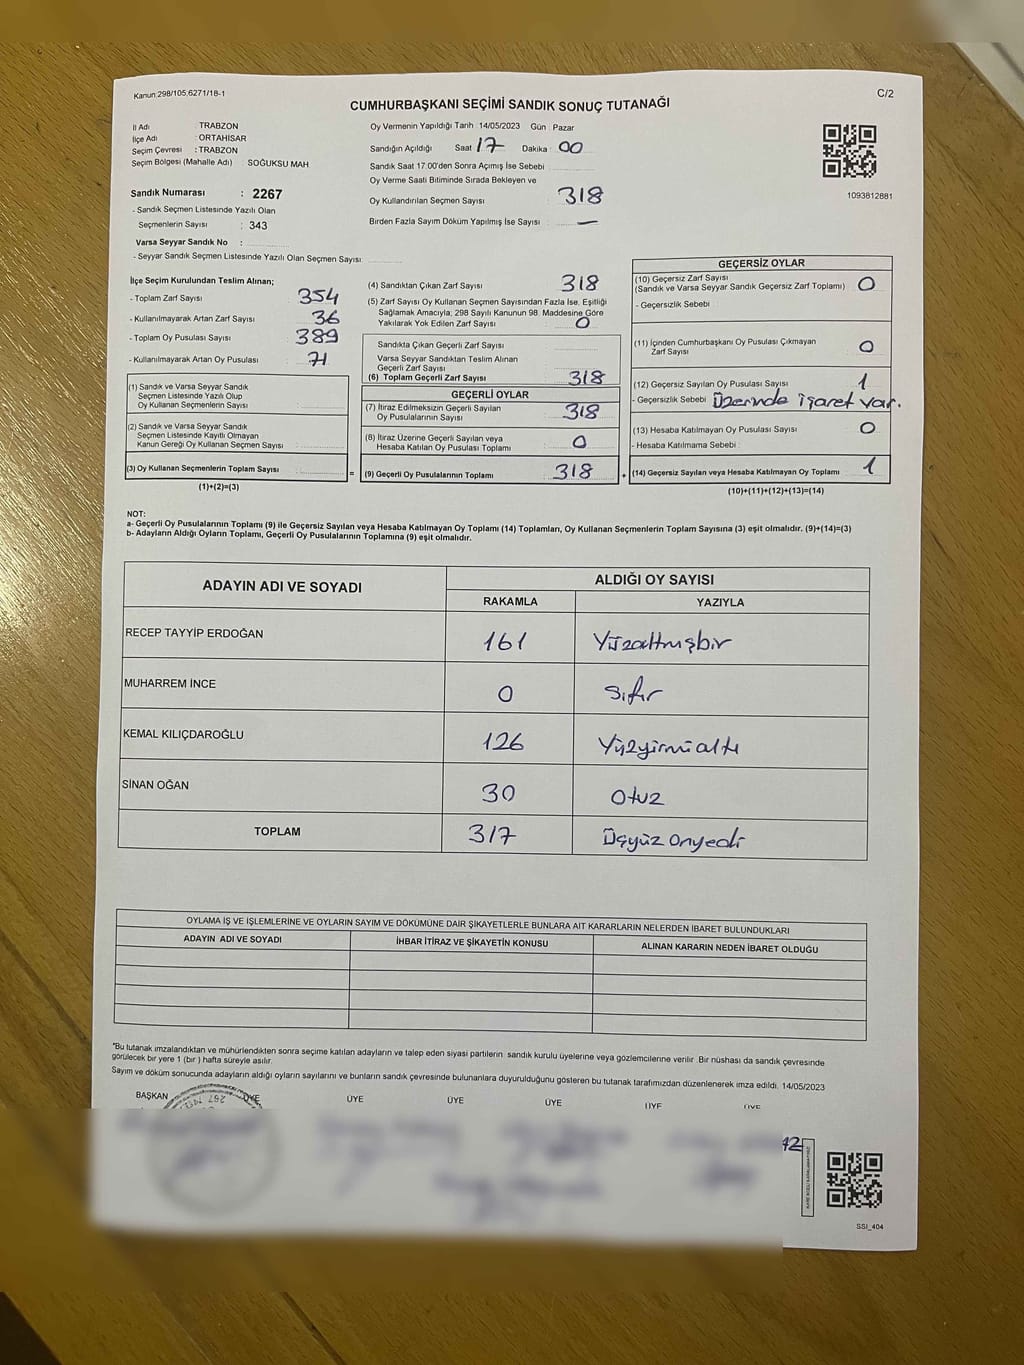 Kanun:298/105,6271/18-1
C/2
CUMHURBAŞKANI SEÇİMİ SANDIK SONUÇ TUTANAĞI
İl Adı TRABZON
İlçe Adı : ORTAHİSAR
Seçim Çevresi : TRABZON
Seçim Bölgesi (Mahalle Adı) : SOĞUKSU MAH
Sandık Numarası : 2267
- Sandık Seçmen Listesinde Yazılı Olan
Seçmenlerin Sayısı : 343
Varsa Seyyar Sandık No :
- Seyyar Sandık Seçmen Listesinde Yazılı Olan Seçmen Sayısı:
Oy Vermenin Yapıldığı Tarih :14/05/2023 Gün : Pazar
Sandığın Açıldığı Saat : 17 Dakika : 00
Sandık Saat 17:00'den Sonra Açımış İse Sebebi :
Oy Verme Saati Bitiminde Sırada Bekleyen ve
Oy Kullandırılan Seçmen Sayısı : 318
Birden Fazla Sayım Döküm Yapılmış İse Sayısı : —
1093812881
İlçe Seçim Kurulundan Teslim Alınan;
- Toplam Zarf Sayısı : 354
- Kullanılmayarak Artan Zarf Sayısı : 36
- Toplam Oy Pusulası Sayısı : 389
- Kullanılmayarak Artan Oy Pusulası : 71
(1) Sandık ve Varsa Seyyar Sandık
Seçmen Listesinde Yazılı Olup
Oy Kullanan Seçmenlerin Sayısı :
(2) Sandık ve Varsa Seyyar Sandık
Seçmen Listesinde Kayıtlı Olmayan
Kanun Gereği Oy Kullanan Seçmen Sayısı :
(3) Oy Kullanan Seçmenlerin Toplam Sayısı : =
(1)+(2)=(3)
(4) Sandıktan Çıkan Zarf Sayısı : 318
(5) Zarf Sayısı Oy Kullanan Seçmen Sayısından Fazla İse, Eşitliği
Sağlamak Amacıyla; 298 Sayılı Kanunun 98. Maddesine Göre
Yakılarak Yok Edilen Zarf Sayısı : 0
Sandıkta Çıkan Geçerli Zarf Sayısı :
Varsa Seyyar Sandıktan Teslim Alınan
Geçerli Zarf Sayısı :
(6) Toplam Geçerli Zarf Sayısı : 318
GEÇERLİ OYLAR
(7) İtiraz Edilmeksizin Geçerli Sayılan
Oy Pusulalarının Sayısı : 318
(8) İtiraz Üzerine Geçerli Sayılan veya
Hesaba Katılan Oy Pusulaları Toplamı : 0
(9) Geçerli Oy Pusulalarının Toplamı : 318 +
GEÇERSİZ OYLAR
(10) Geçersiz Zarf Sayısı
(Sandık ve Varsa Seyyar Sandık Geçersiz Zarf Toplamı) : 0
- Geçersizlik Sebebi :
(11) İçinden Cumhurbaşkanı Oy Pusulası Çıkmayan
Zarf Sayısı : 0
(12) Geçersiz Sayılan Oy Pusulası Sayısı : 1
- Geçersizlik Sebebi : Üzerinde işaret var.
(13) Hesaba Katılmayan Oy Pusulası Sayısı : 0
- Hesaba Katılmama Sebebi :
(14) Geçersiz Sayılan veya Hesaba Katılmayan Oy Toplamı : 1
(10)+(11)+(12)+(13)=(14)
NOT:
a- Geçerli Oy Pusulalarının Toplamı (9) ile Geçersiz Sayılan veya Hesaba Katılmayan Oy Toplamı (14) Toplamları, Oy Kullanan Seçmenlerin Toplam Sayısına (3) eşit olmalıdır. (9)+(14)=(3)
b- Adayların Aldığı Oyların Toplamı, Geçerli Oy Pusulalarının Toplamına (9) eşit olmalıdır.
ADAYIN ADI VE SOYADI ALDIĞI OY SAYISI
RAKAMLA YAZIYLA
RECEP TAYYİP ERDOĞAN 161 Yüzaltmışbir
MUHARREM İNCE 0 sıfır
KEMAL KILIÇDAROĞLU 126 Yüzyirmialtı
SİNAN OĞAN 30 Otuz
TOPLAM 317 Üçyüz Onyedi
OYLAMA İŞ VE İŞLEMLERİNE VE OYLARIN SAYIM VE DÖKÜMÜNE DAİR ŞİKAYETLERLE BUNLARA AİT KARARLARIN NELERDEN İBARET BULUNDUKLARI
ADAYIN ADI VE SOYADI İHBAR İTİRAZ VE ŞİKAYETİN KONUSU ALINAN KARARIN NEDEN İBARET OLDUĞU
*Bu tutanak imzalandıktan ve mühürlendikten sonra seçime katılan adayların ve talep eden siyasi partilerin sandık kurulu üyelerine veya gözlemcilerine verilir. Bir nüshası da sandık çevresinde
görülecek bir yere 1 (bir ) hafta süreyle asılır.
Sayım ve döküm sonucunda adayların aldığı oyların sayılarını ve bunların sandık çevresinde bulunanlara duyurulduğunu gösteren bu tutanak tarafımızdan düzenlenerek imza edildi. 14/05/2023
BAŞKAN ÜYE ÜYE ÜYE ÜYE ÜYE ÜYE
SSI_404